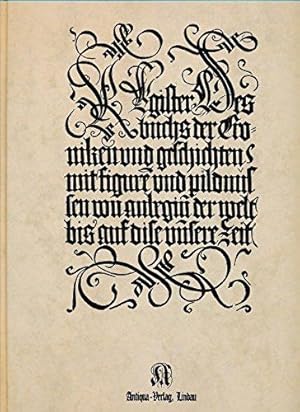 Register Des
buchs der Cro-
niken vnd geschichten
mit figurē vnd pildnus
sen von anbegiñ der welt
bis auf dise vnsere zeit
Antiqua-Verlag, Lindau